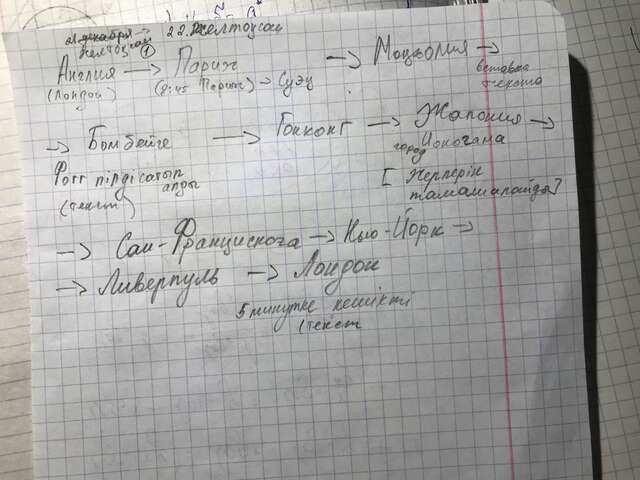 21 декабря → 22. желтоқсан
желтоқсан ①
Англия → Париж → Монголия →
(Лондон) (8:45 Париж) → Суэц вставка текста
→ Бомбейге → Гонконг → Жапония →
город Йокогама
Фогг пілді сатып алды [Жерлерін тамашалайды]
(текст)
→ Сан-Францискога → Нью-Йорк →
→ Ливерпуль → Лондон
5 минутке кешікті
(текст